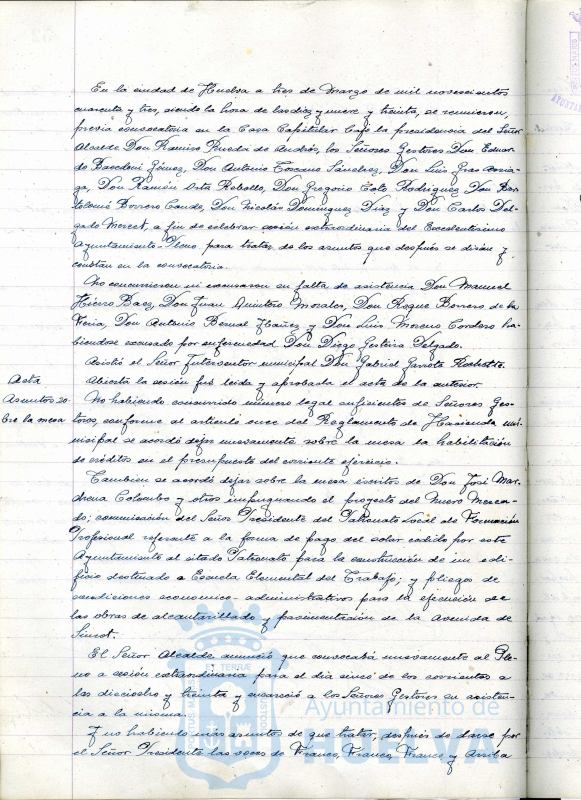 En la ciudad de Huelva a tres de Marzo de mil novecientos
cuarenta y tres, siendo la hora de las diez y nueve y treinta, se reunieron,
previa convocatoria en la Casa Capitular bajo la presidencia del Señor
Alcalde Don Ramiro Rueda de Andrés, los Señores Gestores Don Eduar-
do Gómez, Don Antonio Toscano Sánchez, Don Luis
ga, Don Ramón Orta Rebollo, Don Gregorio Rodríguez, Don Bar-
tolomé Borrero Conde, Don Nicolás Domínguez Díaz y Don Carlos Del-
gado a fin de celebrar sesión extraordinaria del Excelentísimo
Ayuntamiento Pleno para tratar de los asuntos que después se dirán y
constan en la convocatoria.
No concurrieron ni excusaron su falta de asistencia Don Manuel
Hierro Baez, Don Juan Quintero Morales, Don Roque Borrero de la
Feria, Don Antonio Bernal Ibáñez y Don Luis Moreno Cordero ha-
biéndose excusado por enfermedad Don Diego Delgado.
Asistió el Señor Interventor municipal Don Gabriel Garrote
Acta
Abierta la sesión fué leida y aprobada el acta de la anterior.
Asuntos so-
bre la mesa
No habiendo concurrido número legal suficientes de Señores Ges-
tores, conforme al artículo once del Reglamento de Hacienda mu-
nicipal se acordó dejar nuevamente sobre la mesa la habilitación
de créditos en el presupuesto del corriente ejercicio.
Tambien se acordó dejar sobre la mesa escritos de Don José Mar-
chena Colombo y otros impugnando el proyecto del Nuevo Merca-
do; comunicación del Señor Presidente del Patronato Local de Formación
Profesional referente a la forma de pago del solar cedido por este
Ayuntamiento al citado Patronato para la construcción de un edi-
ficio destinado a Escuela Elemental del Trabajo; y pliegos de
condiciones economico-administrativos para la ejecución de
las obras de alcantarillado y pavimentación de la Avenida de
El Señor Alcalde anunció que convocabá nuevamente al Ple-
no a sesión extraordinaria para el dia cinco de los corrientes a
las dieciocho y treinta y encareció a los Señores Gestores su asisten-
cia a la misma.
Y no habiendo más asuntos de que tratar, después de darse por
el Señor Presidente las voces de Franco, Franco, Franco y Arriba
Ayuntamiento de
HUELVA